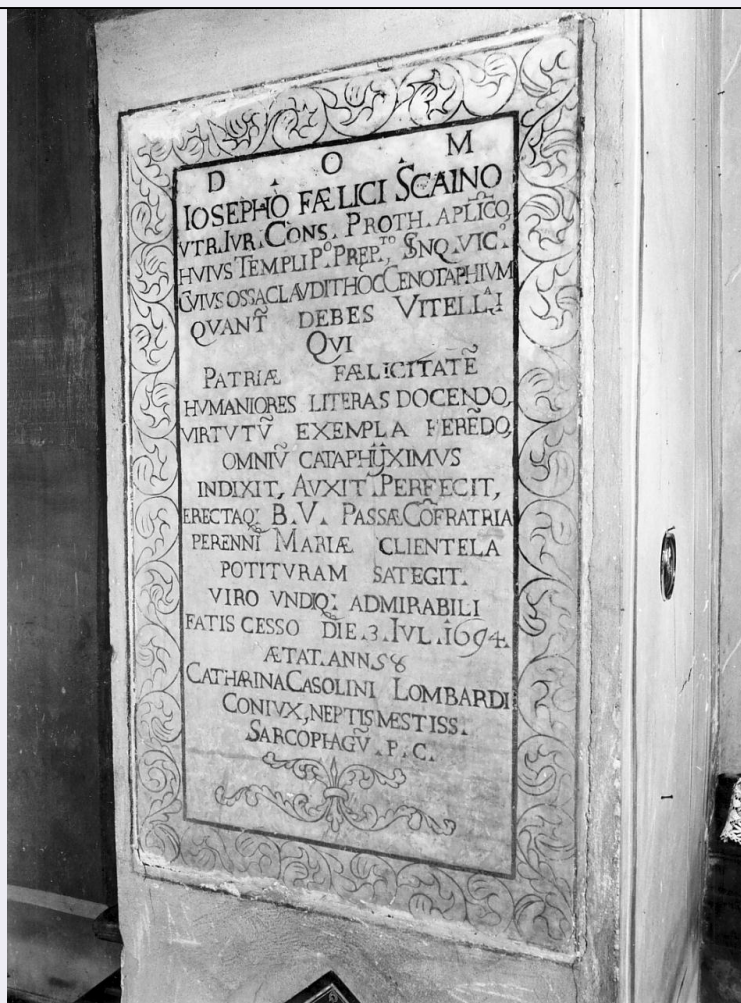 D . O . M
IOSEPHO FÆLICI SCAINO
VTR. IVR. CONS. PROTH. APLICO,
HVIVS TEMPLI Pº. PRĘP.TO, SÑQ. VIC.º
CVIVS OSSA CLAVDIT HOC CENOTAPHIVM
QVANT̃ DEBES VITELL
QVI
PATRIÆ FÆLICITATẼ
HVMANIORES LITERAS DOCENDO,
VIRTVTṼ EXEMPLA FERẼDO,
OMNIṼ
INDIXIT, AVXIT. PERFECIT,
ERECTAQ; B.V. PASSÆ CÕFRATRIA
PERENNĨ MARIÆ CLIENTELA
POTITVRAM SATEGIT.
VIRO VNDIQ; ADMIRABILI
FATIS CESSO DIE .3. IVL. 1694.
ÆTAT. ANN. 58
CATHARINA CASOLINI LOMBARDI
CONIVX, NEPTIS MÆSTISS.
SARCOPHAGṼ . P. C.